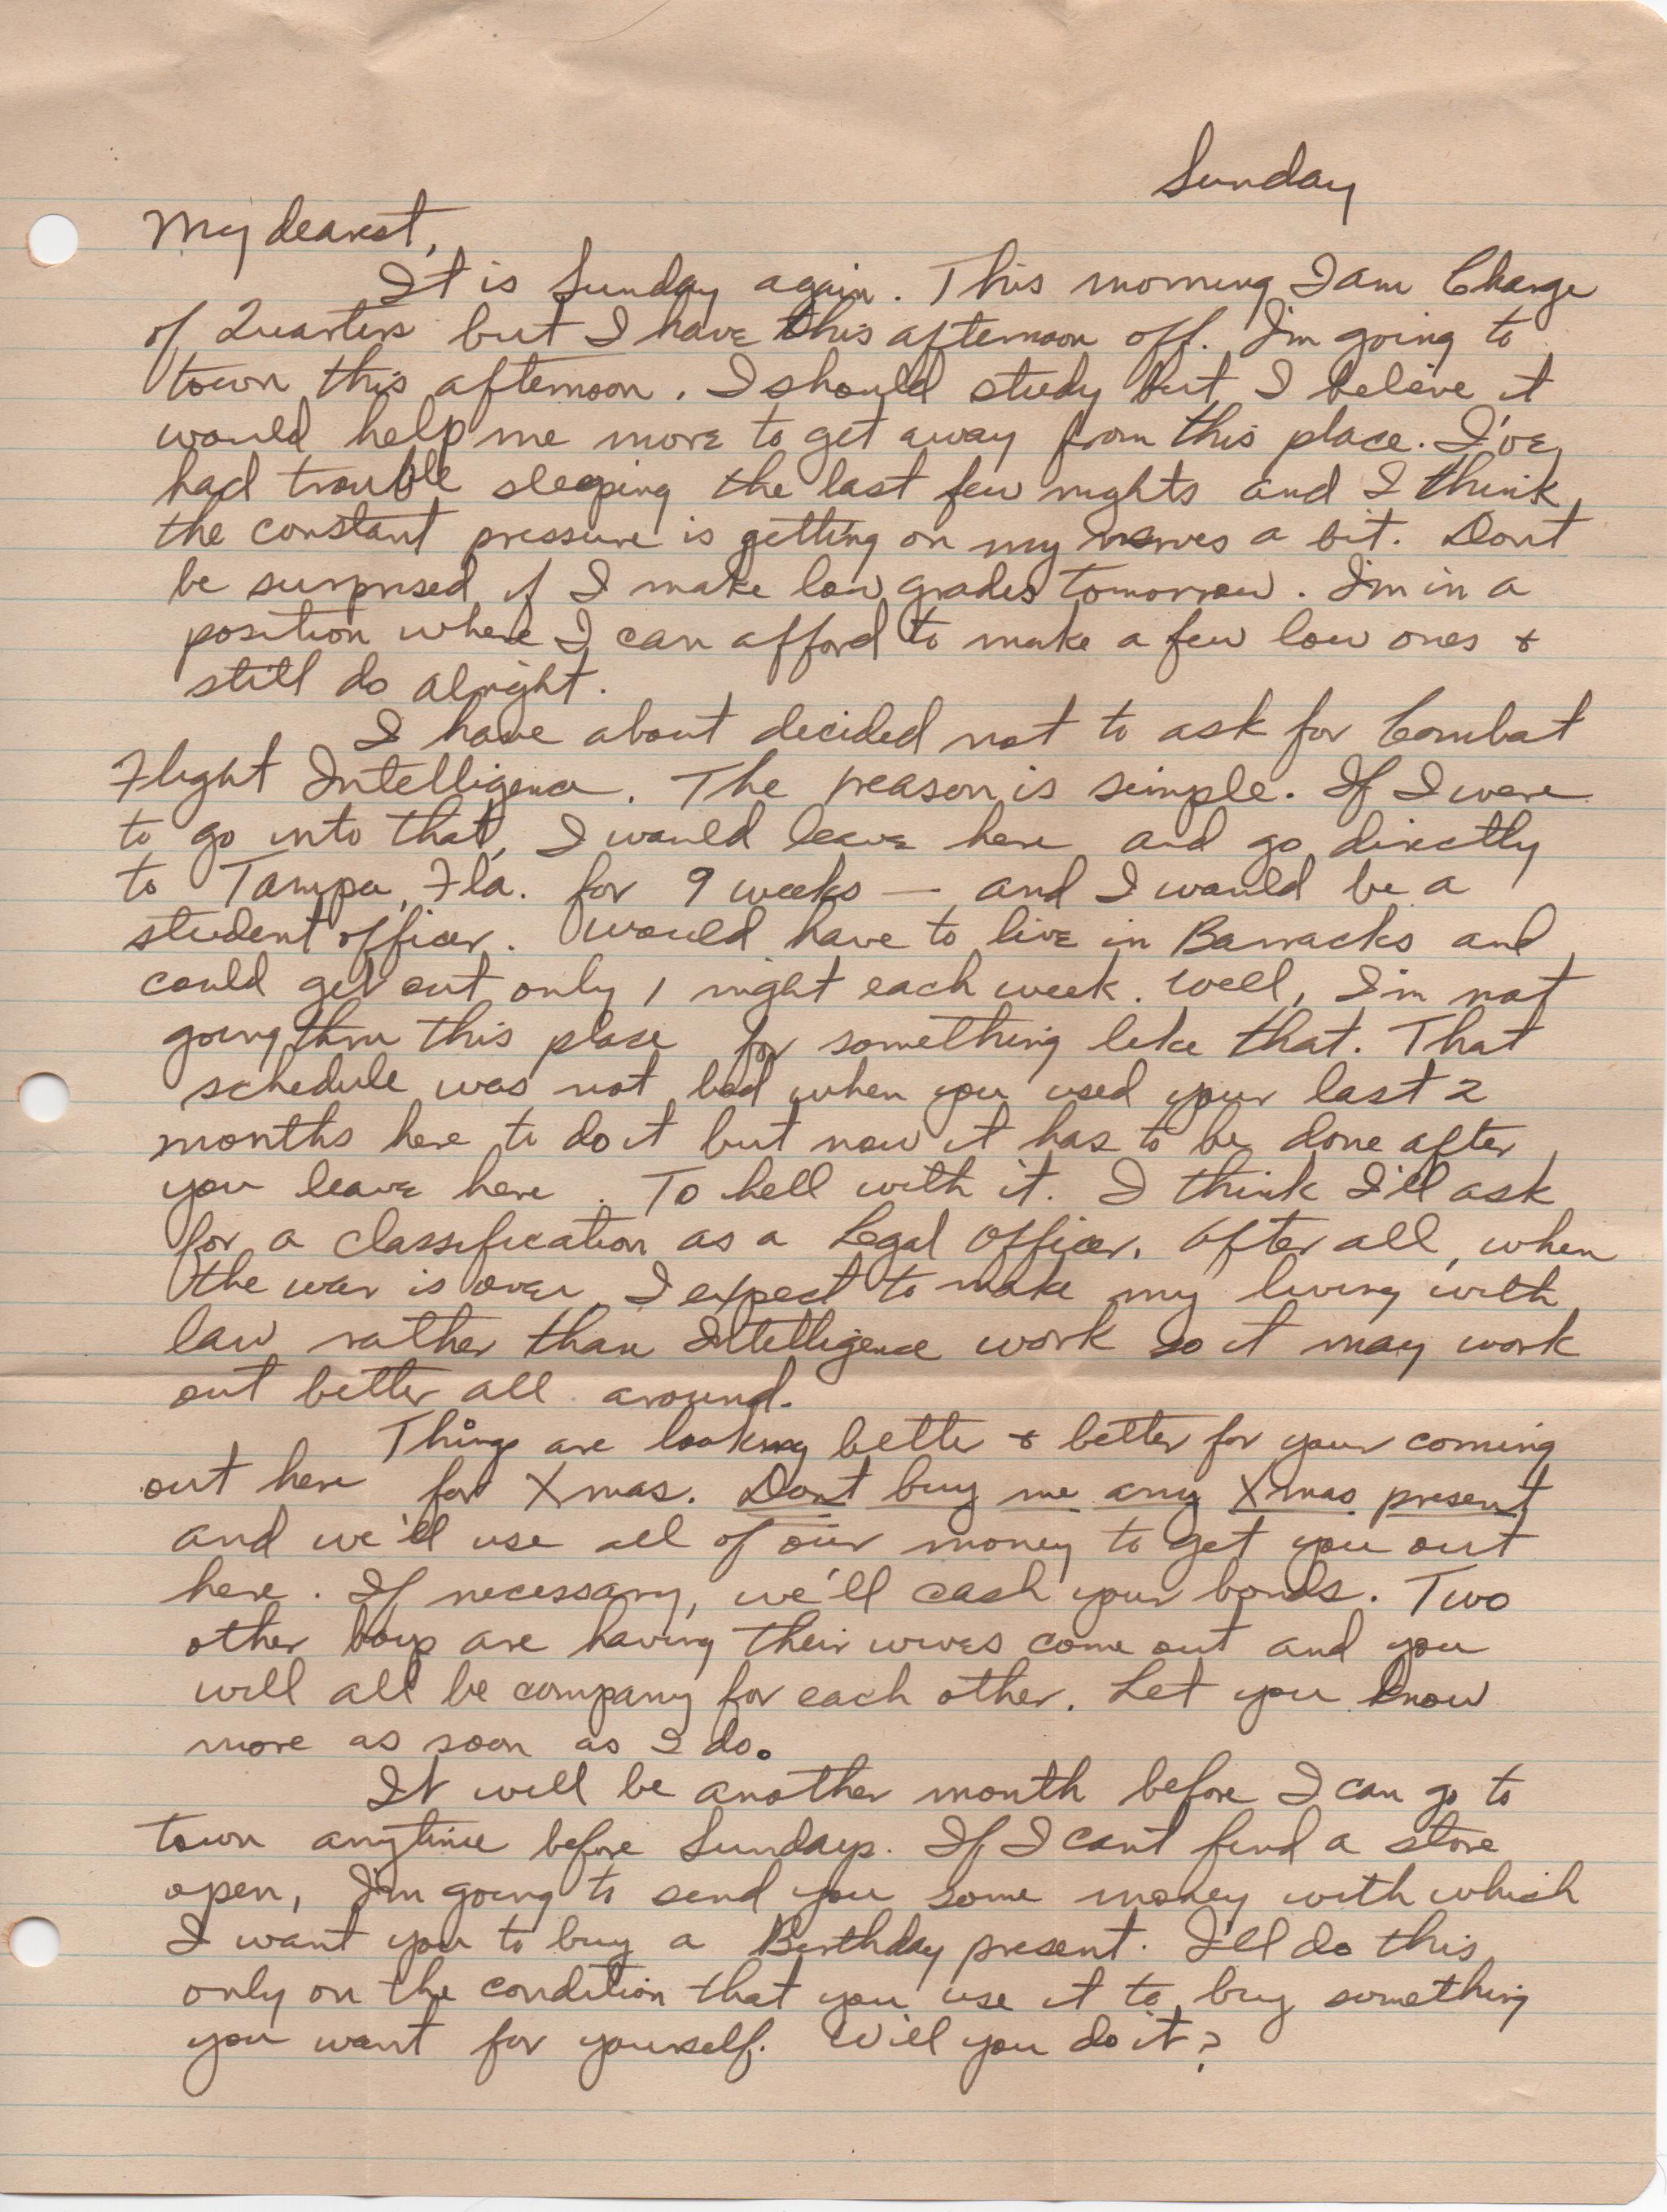 Sunday
My dearest,
It is Sunday again. This morning I am Charge
of Quarters but I have this afternoon off. I'm going to
town this afternoon. I should study but I believe it
would help me more to get away from this place. I've
had trouble sleeping the last few nights and I think
the constant pressure is getting on my nerves a bit. Dont
be surprised if I make low grades tomorrow. I'm in a
position where I can afford to make a few low ones &
still do alright.
I have about decided not to ask for Combat
Flight Intelligence. The reason is simple. If I were
to go into that, I would leave here and go directly
to Tampa, Fla. for 9 weeks — and I would be a
student officer. Would have to live in Barracks and
could get out only 1 night each week. Well, I'm not
going thru this place for something like that. That
schedule was not bad when you used your last 2
months here to do it but now it has to be done after
you leave here. To hell with it. I think I'll ask
for a classification as a Legal Officer. After all, when
the war is over, I expect to make my living with
law rather than Intelligence work so it may work
out better all around.
Things are looking better & better for your coming
out here for Xmas. Dont buy me any Xmas present
and we'll use all of our money to get you out
here. If necessary, we'll cash your bonds. Two
other boys are having their wives come out and you
will all be company for each other. Let you know
more as soon as I do.
It will be another month before I can go to
town anytime before Sundays. If I cant find a store
open, I'm going to send you some money with which
I want you to buy a Birthday present. I'll do this
only on the condition that you use it to buy something
you want for yourself. Will you do it?